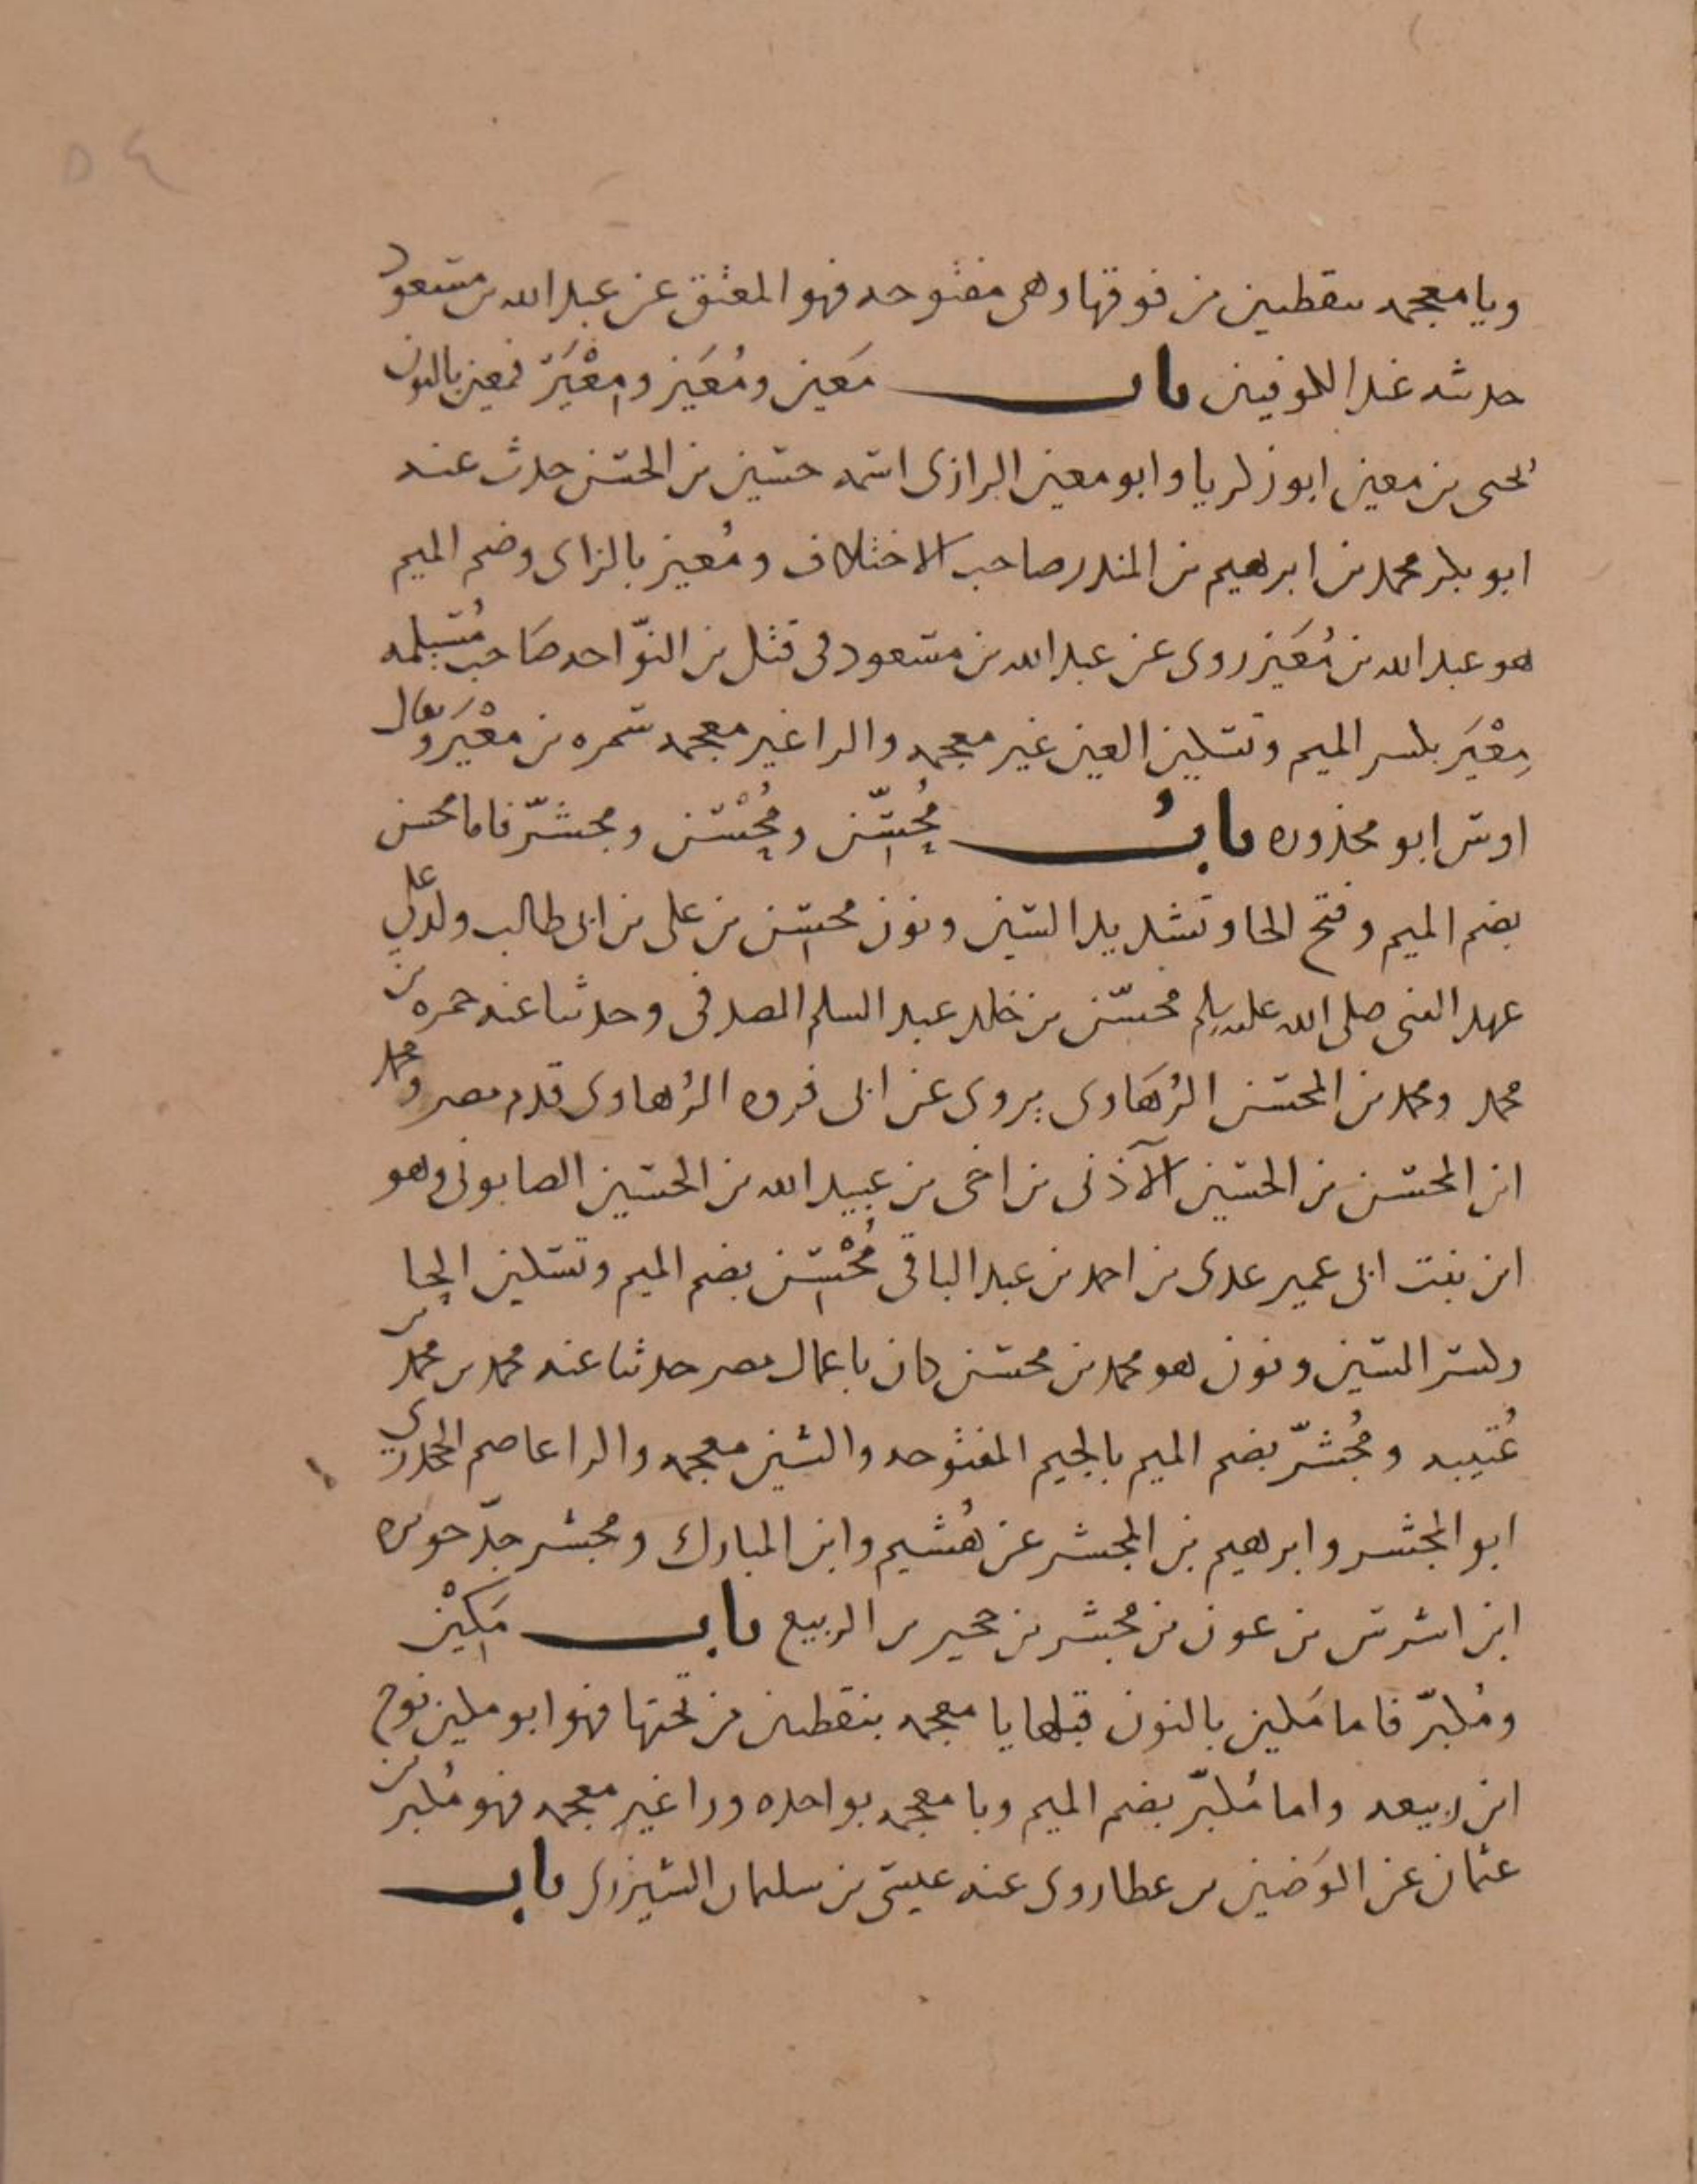 ٥٤
ويا معجمه بنقطتين من فوقها وهى مفتوحه فهو المعتق عن عبد الله بن مسعود
حديثه عند الكوفيين باب مَعين ومُعَيز ومِعْيَر فمعين بالنون
يحيى بن معين ابو زكريا وابو معين الرازى اسمه حسين بن الحسن حدث عنه
ابو بكر محمد بن ابرهيم بن المنذر صاحب الاختلاف ومُعيز بالزاى وضم الميم
هو عبد الله بن مُعَيز روى عن عبد الله بن مسعود فى قتل بن النوّاحه صَاحب مُسَيلمه
مِعْيَر بكسر الميم وتسكين العين غير معجمه والرا غير معجمه سمره بن مِعْيَر ويقال
اوس ابو محذوره بابُ مُحسِّن ومُحْسن ومجشّر فاما محسن
بضم الميم وفتح الحا وتشديد السين ونون محسن بن على بن ابى طالب ولد على
عهد النبى صلى الله عليه وسلم محسّن بن خلد عبد السلم الصدفى وحدثنا عنه حمزه بن
محمد ومحمد بن المحسن الرُهَاوى يروى عن ابى فروه الرُهاوى قدم مصر ومحمد
ابن المحسن بن الحسين الآذنى بن اخى بن عبيد الله بن الحسين الصابونى وهو
ابن بنت ابى عمير عدى بن احمد بن عبد الباقى مُحْسِن بضم الميم وتسكين الحا
وكسر السين ونون هو محمد بن محسن كان باعمال مصر حدثنا عنه محمد بن محمد بن
عُتيبه ومُجشّر بضم الميم بالجيم المفتوحه والشين معجمه والرا عاصم الجحدرى
ابو المجشر وابرهيم بن المجشر عن هُشيم وابن المبارك ومجشر جدّ حوثره
ابن اشرس بن عون بن مجشر بن حجير بن الربيع باب مَكِيْن
ومُكبّر فاما مَكين بالنون قبلها يا معجمه بنقطتين من تحتها فهو ابو مكين نوح
ابن ربيعه واما مُكبّر بضم الميم وبا معجمه بواحده ورا غير معجمه فهو مُكبر بن
عثمان عن الوَضين بن عطا روى عنه عيسى بن سليمان الشيزرى باب